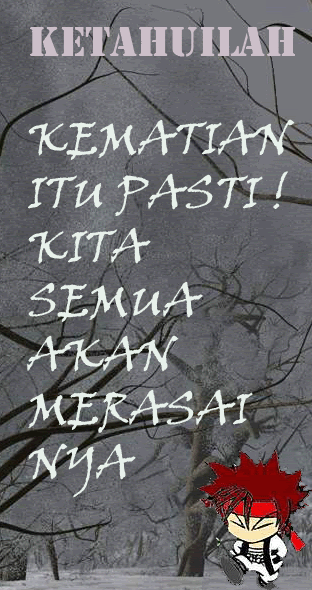 KETAHUILAH
KEMATIAN
ITU PASTI !
KITA
SEMUA
AKAN
MERASAI
NYA